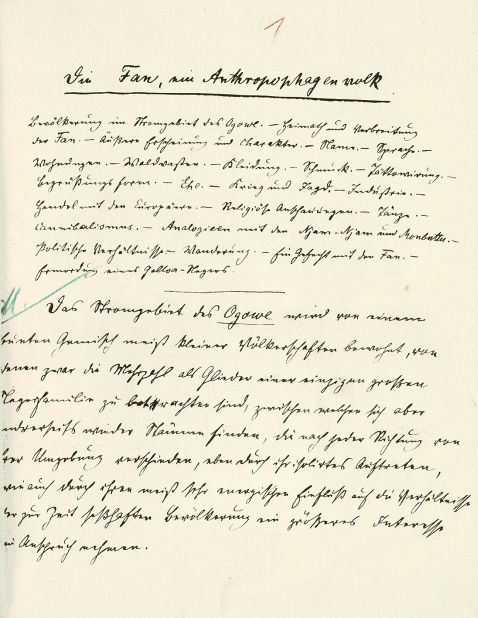 1
Die Fan, ein Anthropophagenvolk
Bevölkerung im Stromgebiet des Ogowe. – Heimath und Verbreitung
der Fan. – Äußere Erscheinung und Charakter. – Name. – Sprache. –
Wohnungen. – Waldwesten. – Kleidung. – Schmuck. – Tättowirung. –
Begrüßungsform. – Ehe. – Krieg und Jagd. – Industrie. –
Handel mit den Europäern. – Religiöse Anschauungen. – Tänze. –
Cannibalismus. – Analogieen mit den Njam-Njam und Monbuttu. –
Politische Verhältnisse – Wanderung. – Ein Gefecht mit den Fan. –
Ermordung eines Galloa-Negers.
Das Stromgebiet des Ogowe wird von einem
bunten Gemisch meist kleiner Völkerschaften bewohnt, von
denen zwar die Mehrzahl als Glieder einer einzigen großen
Negerfamilie zu betrachten sind, zwischen welchen sich aber
andrerseits wieder Stämme finden, die nach jeder Richtung von
ihrer Umgebung verschieden, eben durch ihr isolirtes Auftreten,
wie auch durch ihren meist sehr energischen Einfluß auf die Verhältnisse
der zur Zeit seßhaften Bevölkerung ein größeres Interesse
in Anspruch nehmen.